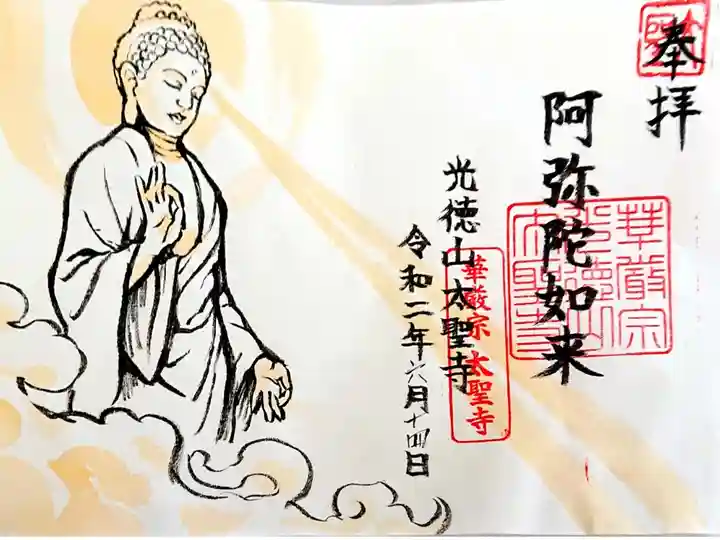 奉拝
阿弥陀如来
華厳宗
光徳山
太聖寺
光徳山太聖寺
華厳宗太聖寺
令和二年六月十四日